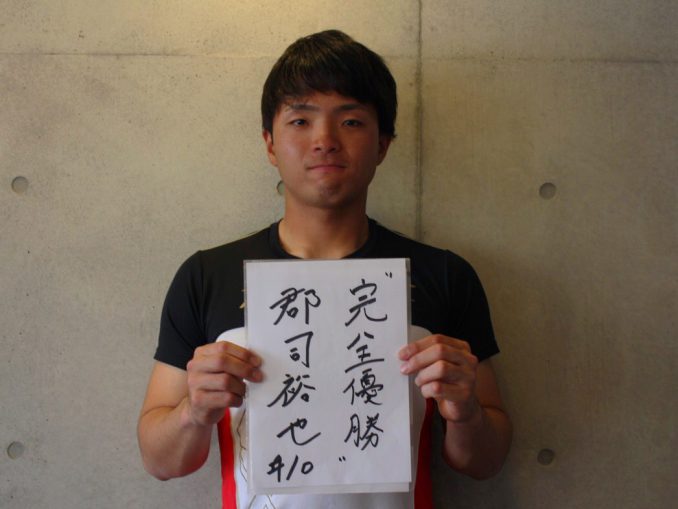 "完全優勝"
郡司裕也
#10